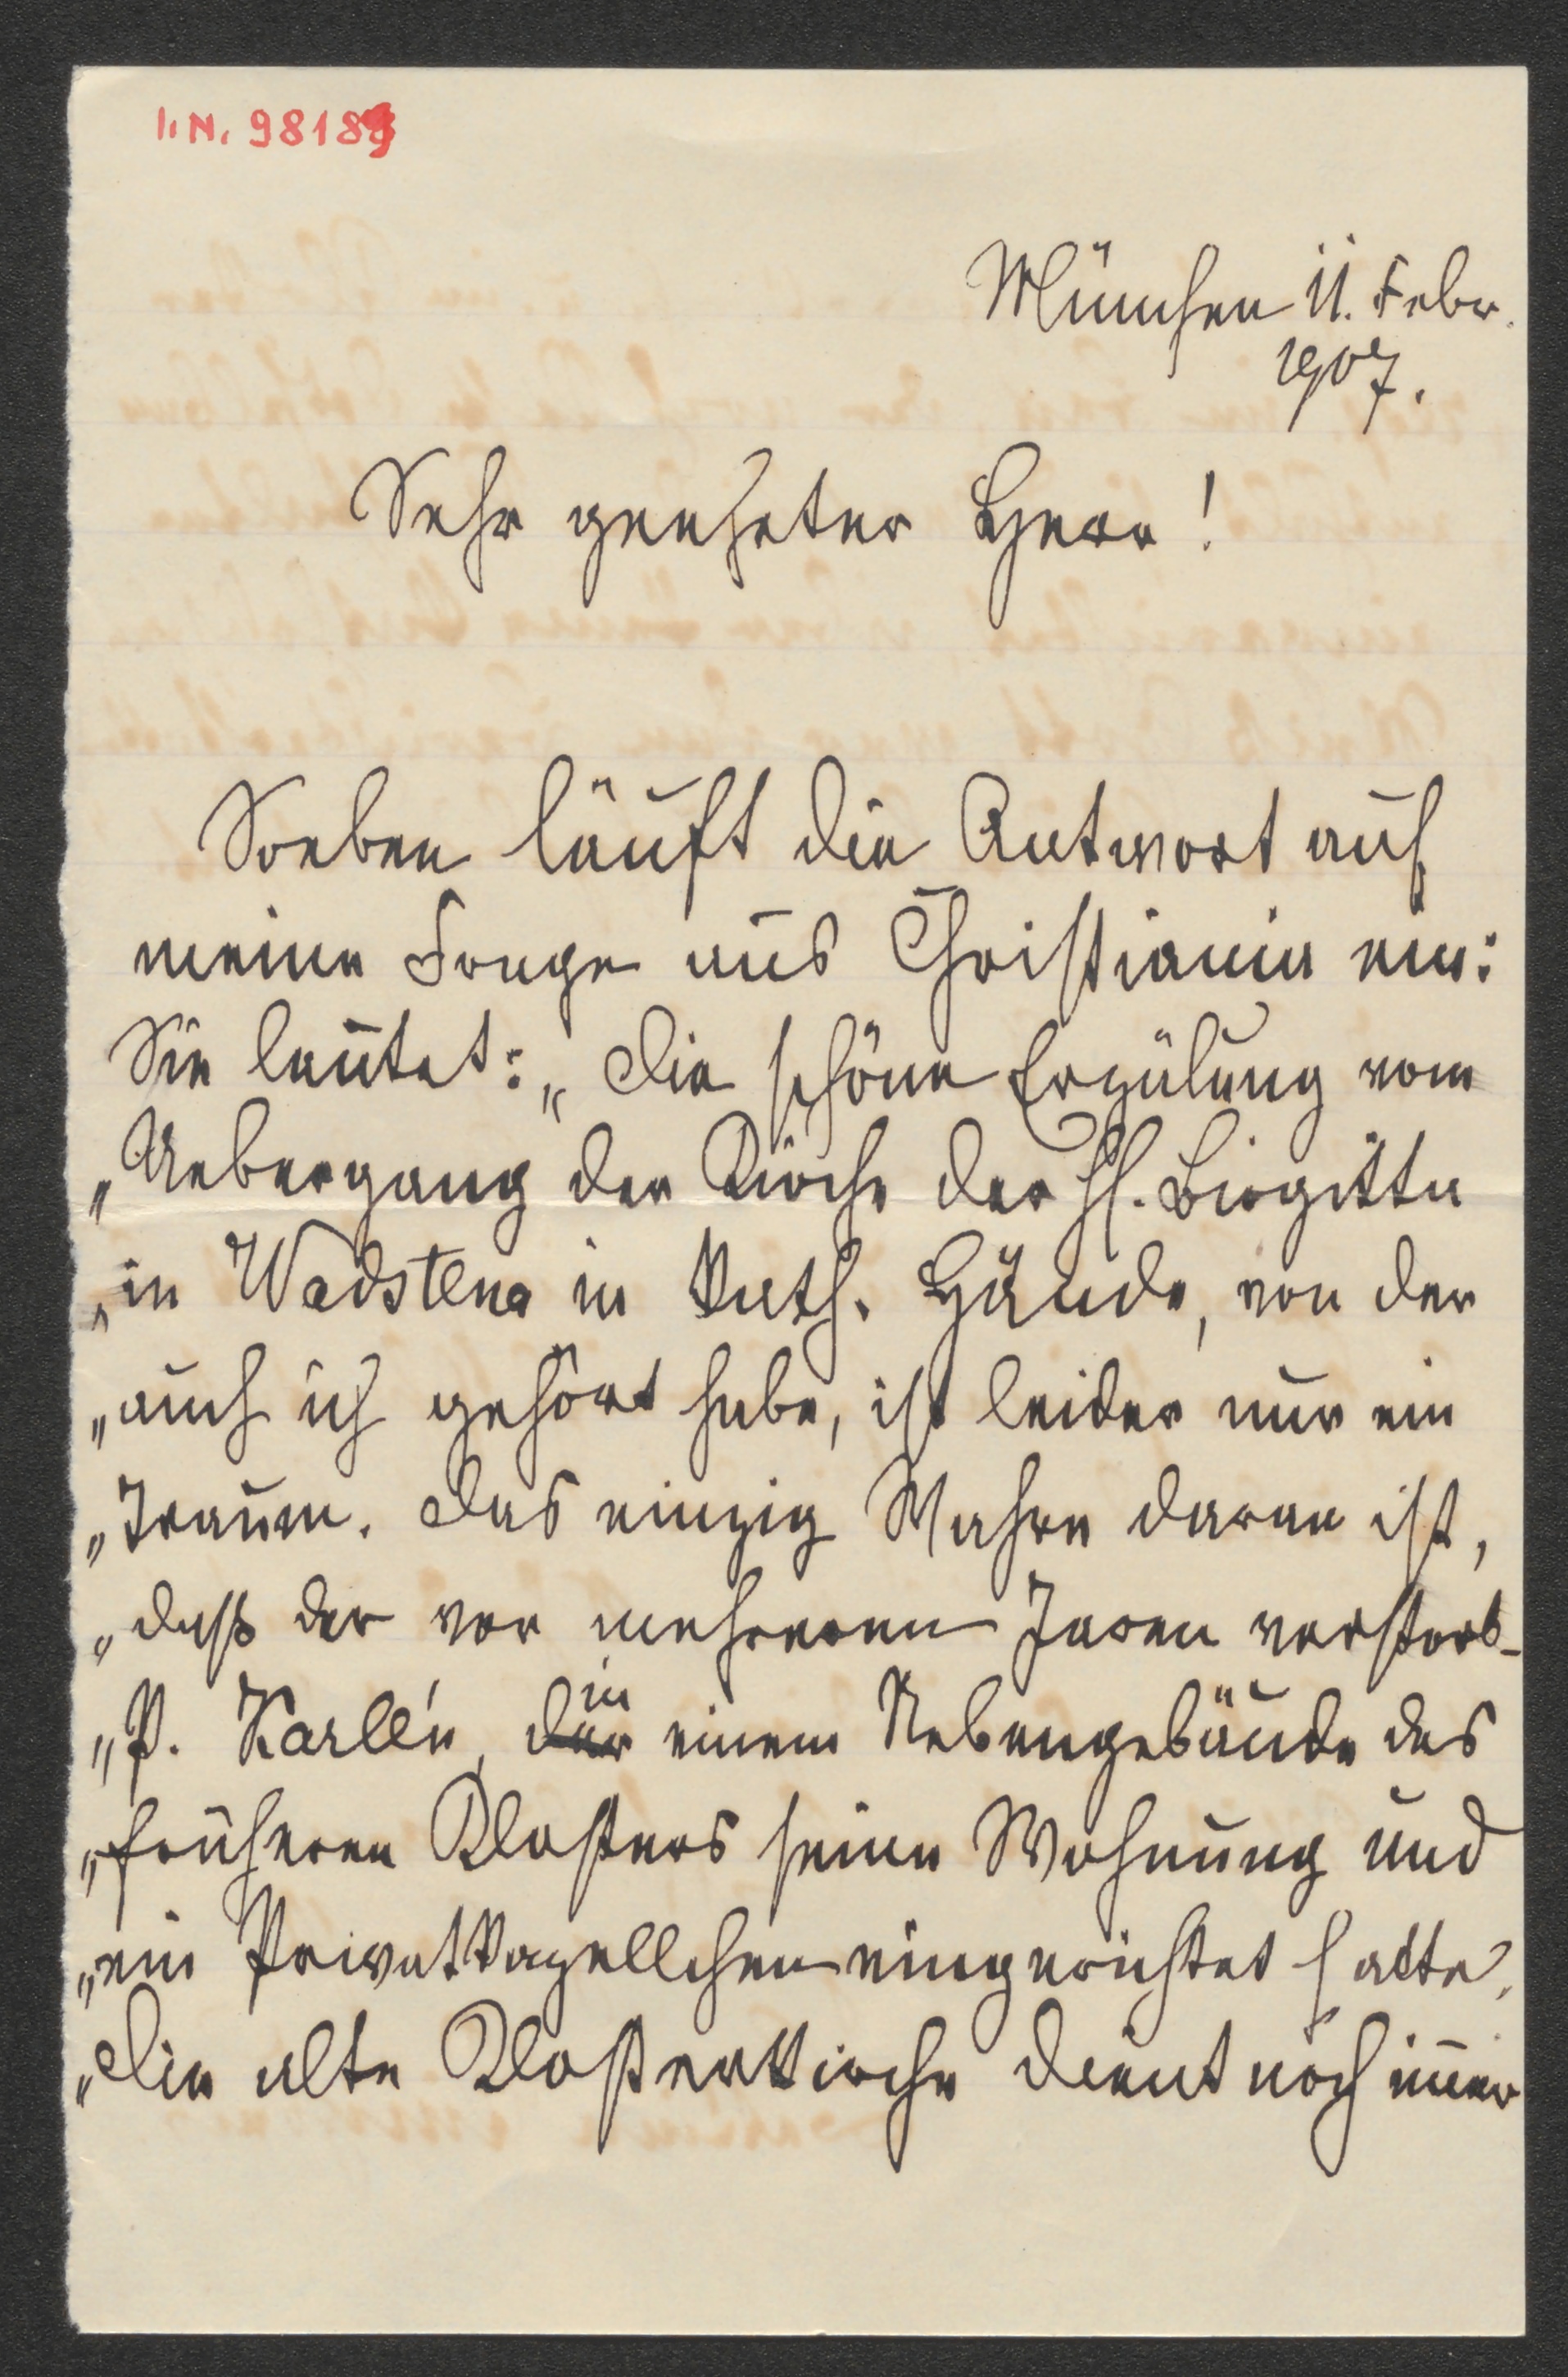 I. N. 98189
München 11. Febr.
1907.
Sehr geehrter Herr!
Soeben läuft die Antwort auf
meine Frage aus Christiania ein:
Sie lautet: „Die schöne Erzälung vom
„Uebergang der Kirche der hl. Birgitta
„in Wadstena in kath. Hände, von der
„auch ich gehört habe, ist leider nur ein
„Traum. Das einzig Wahre daran ist,
„daß der vor mehreren Jaren verstorb-
„P. Karlén, in einem Nebengebäude des
„früheren Klosters seine Wohnung und
„ein Privatkapellchen eingerichtet hatte.
„Die alte Klosterkirche dient noch im̄er